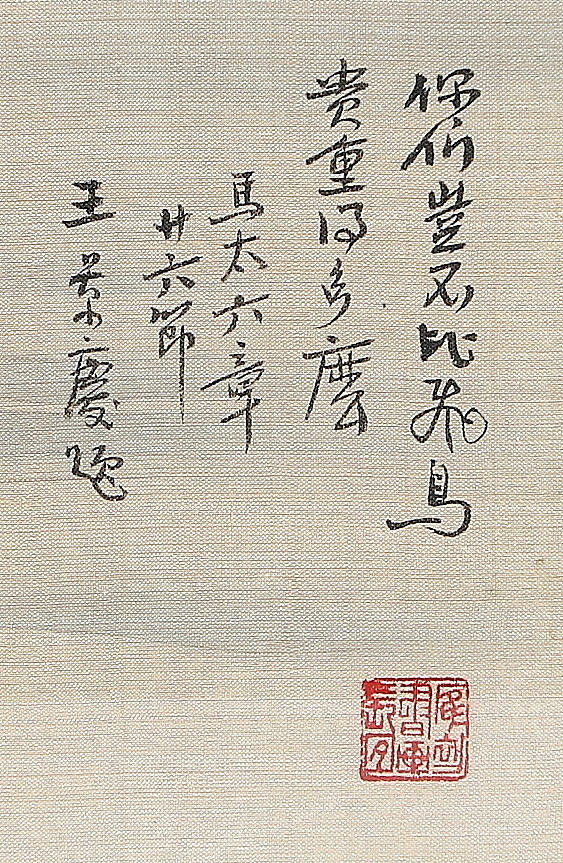 你們豈不比飛鳥
貴重得多麼
馬太六章
廿六節
王景慶題